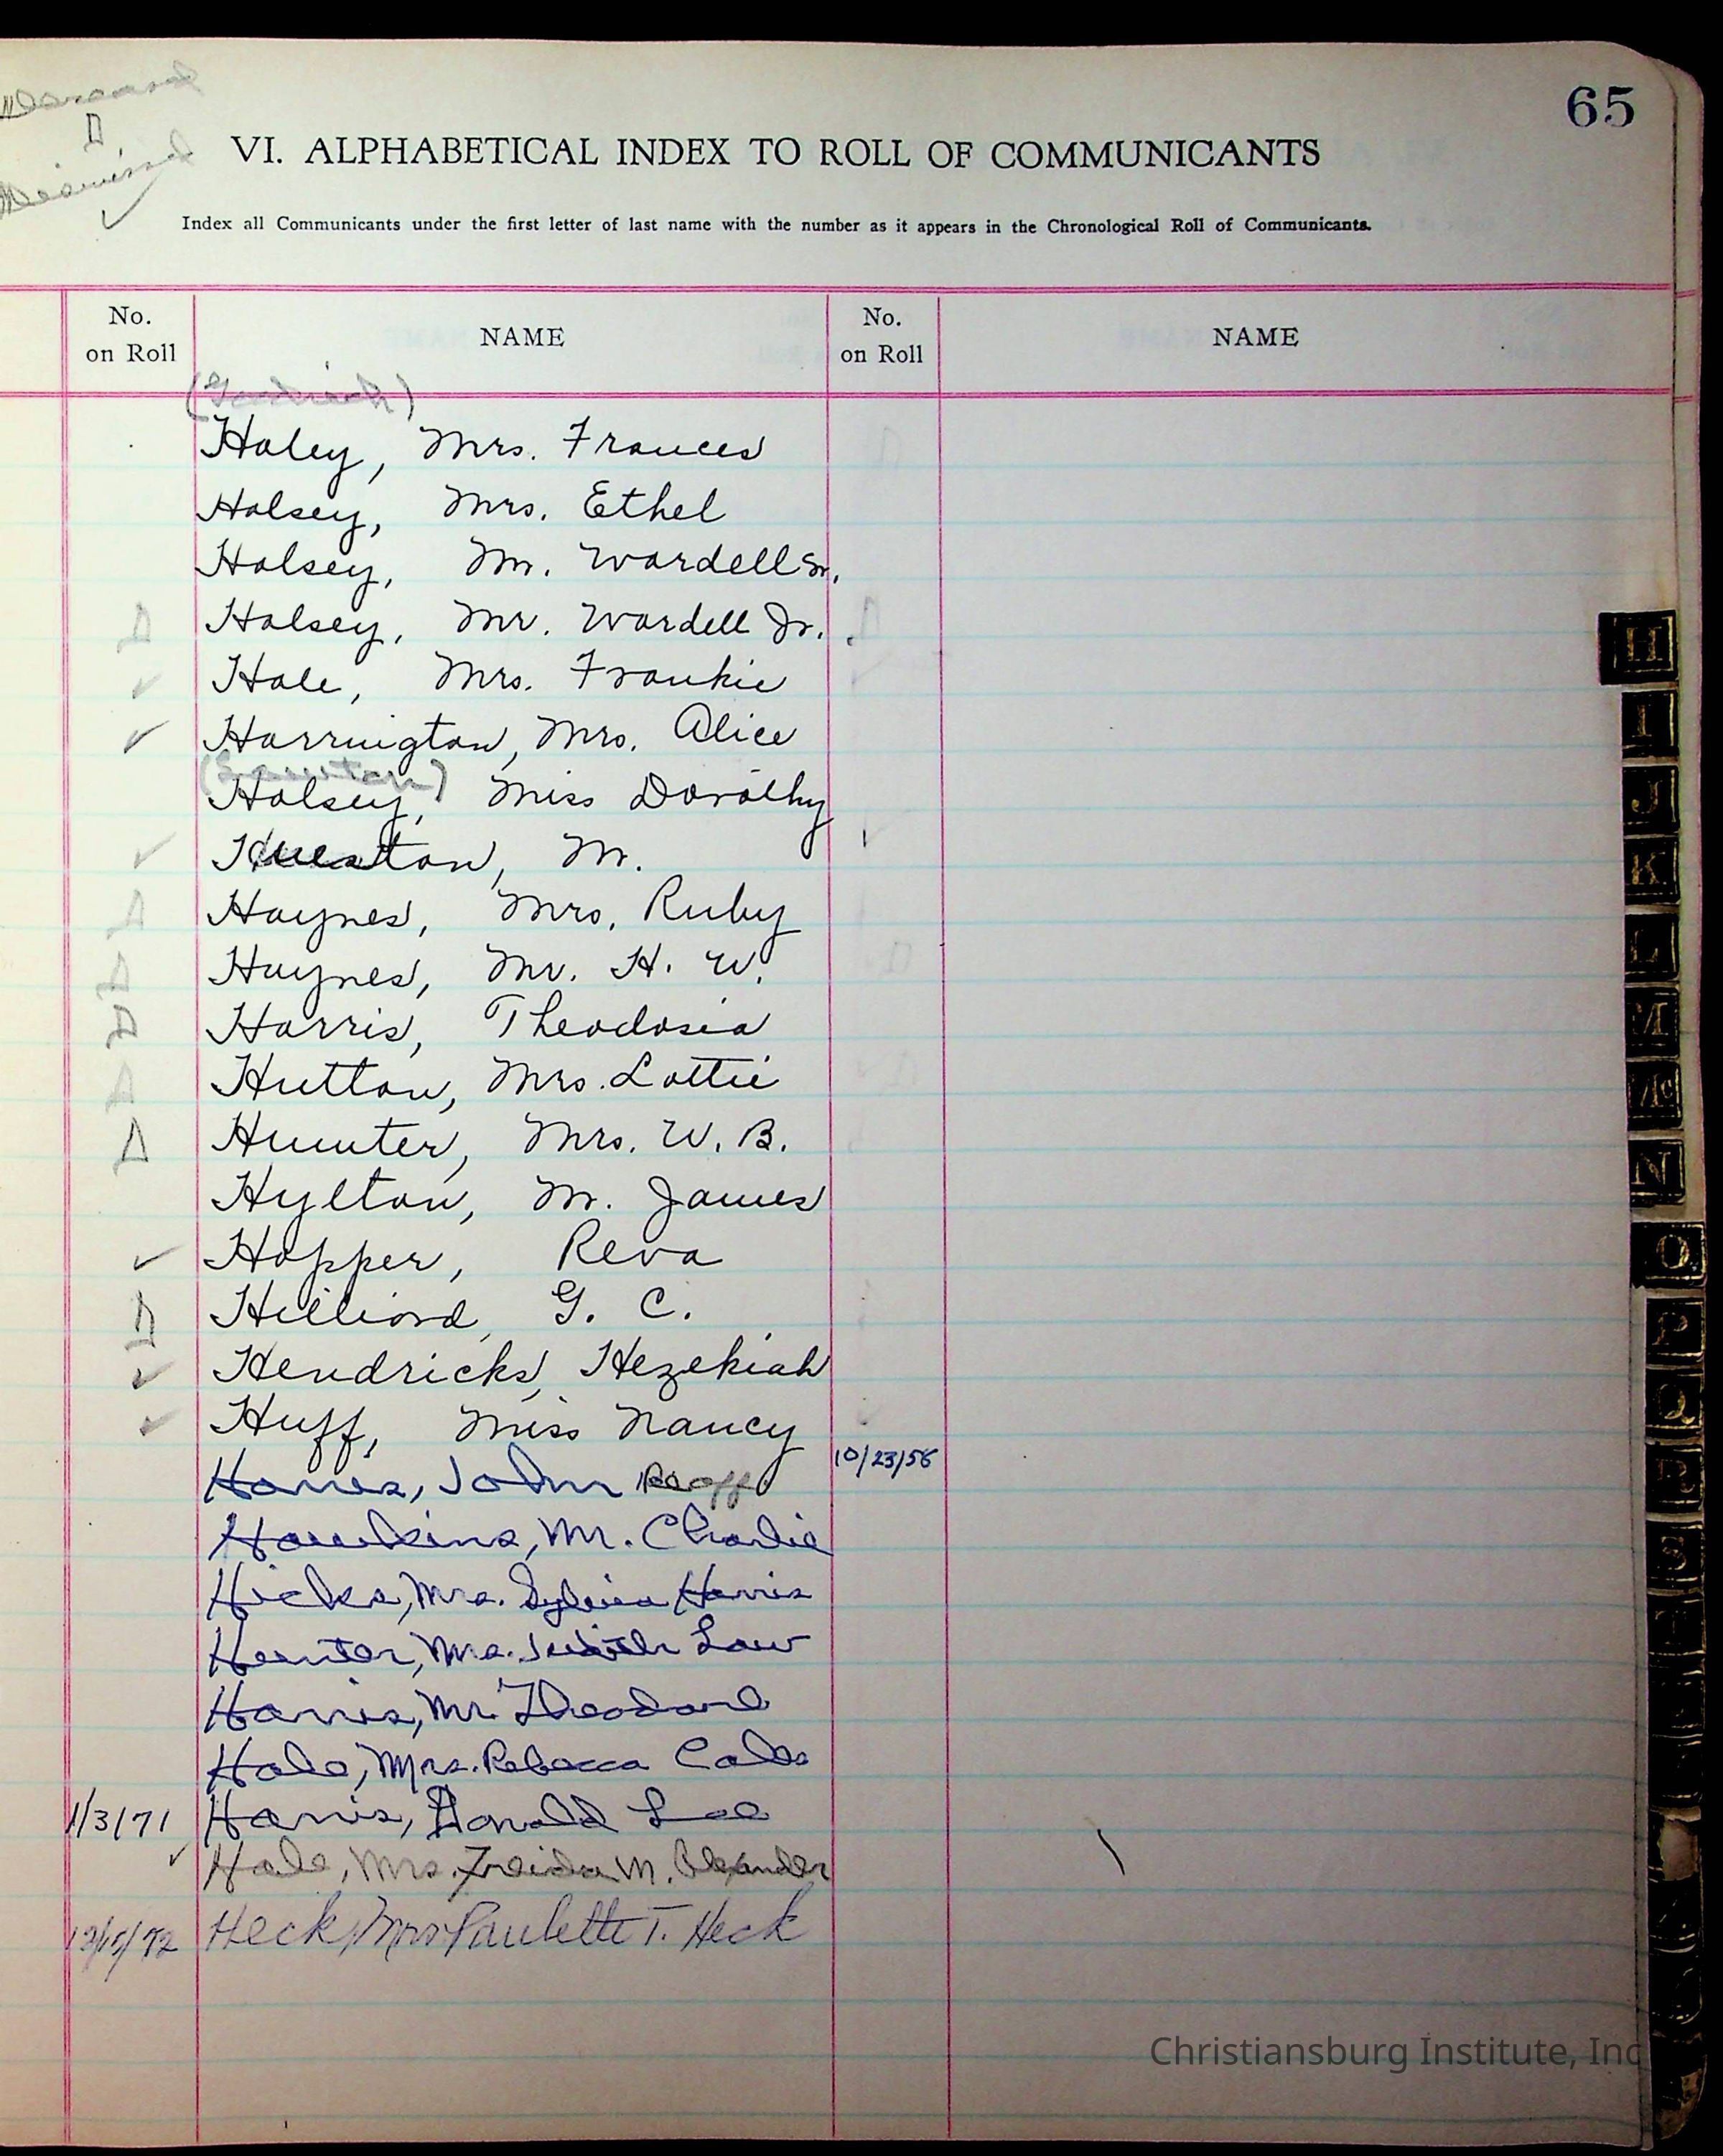 65
Deceased
D
Dismissed
✓
VI. ALPHABETICAL INDEX TO ROLL OF COMMUNICANTS
Index all Communicants under the first letter of last name with the number as it appears in the Chronological Roll of Communicants.
No. on Roll NAME No. on Roll NAME
Haley, Mrs. Frances
Holsey, Mrs. Ethel
Holsey, Mr. Wardell Sr.
D Holsey, Mr. Wardell Jr.
✓ Hale, Mrs. Frankie
✓ Harrington, Mrs. Alice
Holsey, Miss Dorothy
✓ Hueston, Mr.
D Haynes, Mrs. Ruby
D Haynes, Mr. H. W.
D Harris, Theodosia
D Hutton, Mrs. Lottie
D Hunter, Mrs. W. B.
Hylton, Mr. James
✓ Hopper, Reva
D Hilliard, G. C.
✓ Hendricks, Hezekiah
✓ Huff, Miss Nancy
Harris, John 10/23/56
Hawkins, Mr. Charlie
Hicks, Mrs. Sylvia Harris
Hunter, Mrs. Judith Law
Harris, Mr. Theodore
Hale, Mrs. Rebecca Cales
1/3/71 Harris, Donald Lee
✓ Hale, Mrs. Freida M. Alexander
Heck, Mrs Paulette T. Heck
H
I
J
K
L
M
Mc
N
O
P
Q
R
S
Christiansburg Institute, Inc